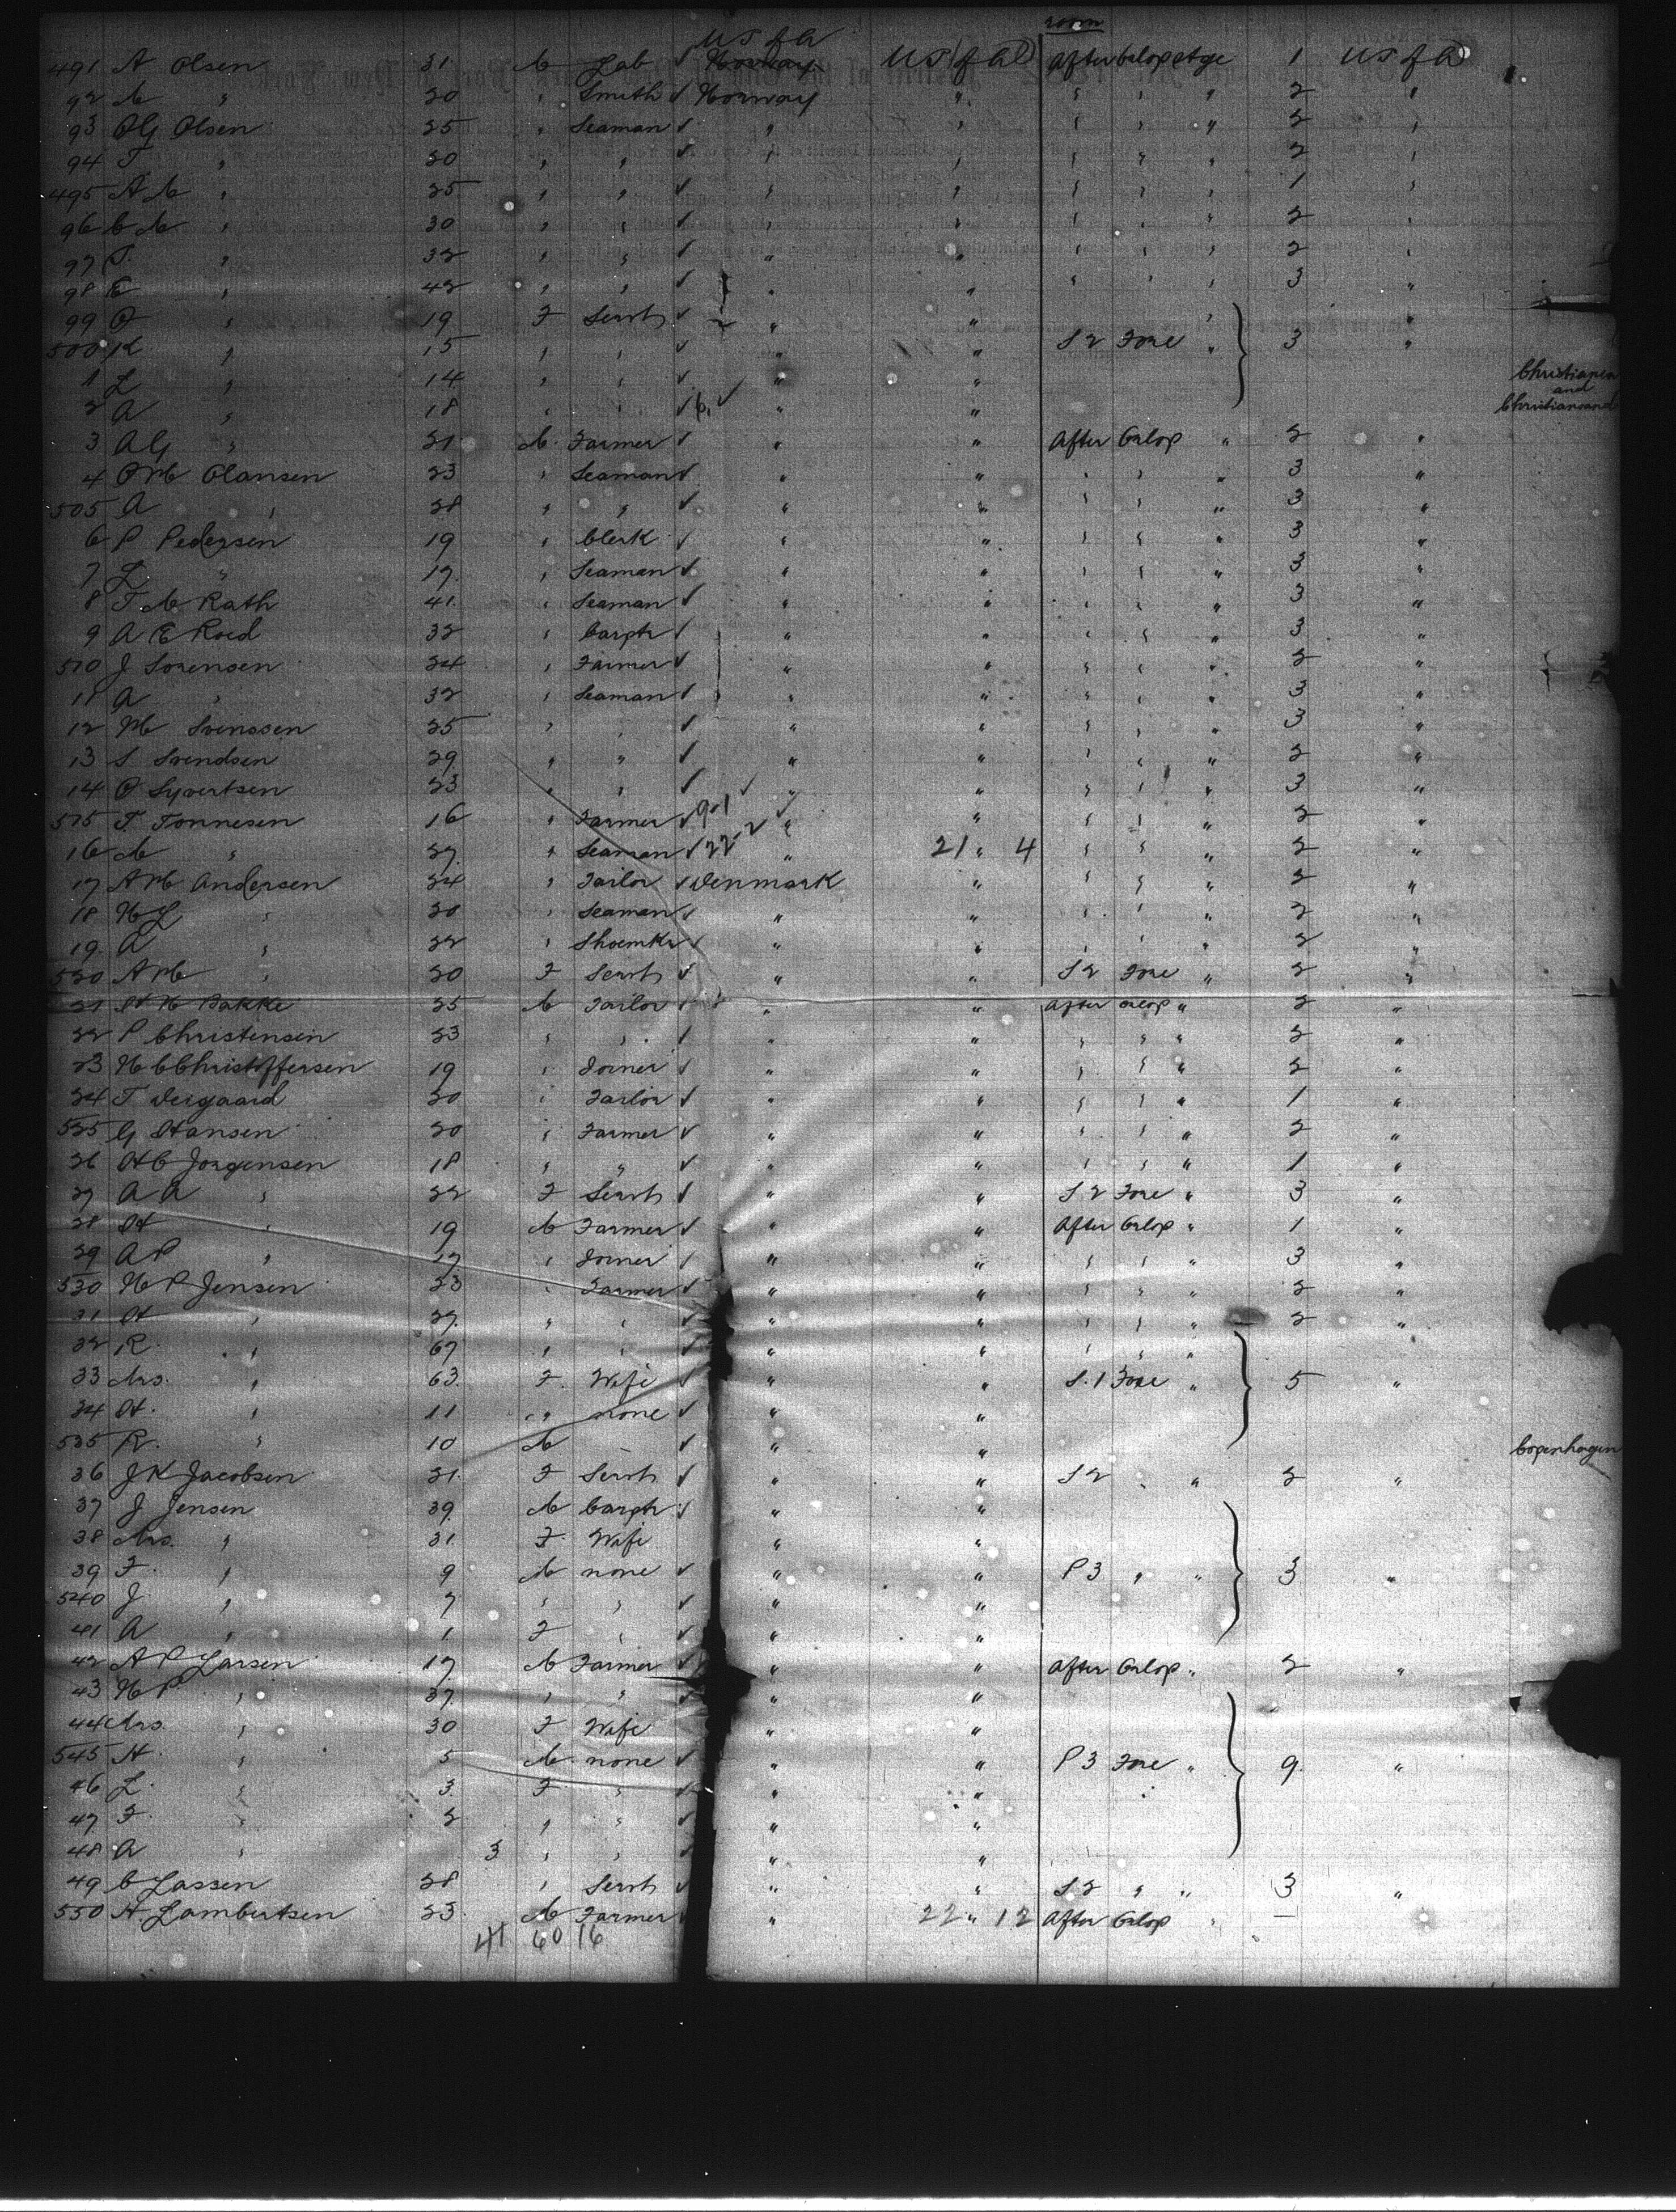 room
US of A
491 A Olsen 31 M Lab ✓ Norway US of A After Orlop stge 1 US of A
92 M " 20 " Smith ✓ Norway " " " " 2 "
93 OG Olsen 25 " Seaman ✓ " " " " " 2 "
94 T " 20 " " ✓ " " " " " 2 "
495 AM " 25 " " ✓ " " " " " 1 "
96 CM " 30 " " ✓ " " " " " 2 "
97 T. " 32 " " ✓ " " " " " 2 "
98 E " 42 " " ✓ " " " " " 3 "
99 O " 19 F Servt ✓ " " " "
500 K " 15 " " ✓ " " S2 Fore " 3 "
1 L " 14 " " ✓ " " Christiania
and
2 A " 18 " " ✓ 6 ✓ " " Christiansand
3 AG " 21 M Farmer ✓ " " After Orlop " 2 "
4 OM Olansen 23 " Seaman ✓ " " " " " 3 "
505 A " 28 " " ✓ " " " " " 3 "
6 P Pedersen 19 " Clerk ✓ " " " " " 3 "
7 L " 17 " Seaman ✓ " " " " " 3 "
8 T M Rath 41 " Seaman ✓ " " " " " 3 "
9 A E Roed 32 " Carptr ✓ " " " " " 3 "
510 J Sorensen 24 " Farmer ✓ " " " " " 2 "
11 A " 32 " Seaman ✓ " " " " " 3 "
12 M Svenssen 25 " " ✓ " " " " " 3 "
13 S Svendsen 29 " " ✓ " " " " " 2 "
14 O Syvertsen 23 " " ✓ ✓ " " " " " 3 "
515 T Tonnesen 16 " Farmer ✓ 9-1 ✓ " " " " " 2 "
16 M " 27 " Seaman ✓ 22-2 " 21 " 4 " " " 2 "
17 AM Andersen 24 " Tailor ✓ Denmark " " " " 2 "
18 NL " 20 " Seaman ✓ " " " " " 2 "
19 A " 22 " Shoemkr ✓ " " " " " 2 "
520 AM " 20 F Servt ✓ " " S2 Fore " 2 "
21 H N Bakke 25 M Tailor ✓ " " After Orlop " 2 "
22 P Christensen 23 " " ✓ " " " " " 2 "
23 N C Christoffersen 19 " Joiner ✓ " " " " " 2 "
24 T Deigaard 20 " Tailor ✓ " " " " " 1 "
525 G Hansen 20 " Farmer ✓ " " " " " 2 "
26 HC Jorgensen 18 " " ✓ " " " " " 1 "
27 A A " 22 F Servt ✓ " " S2 Fore " 3 "
28 H " 19 M Farmer ✓ " " After Orlop " 1 "
29 AP " 17 " Joiner ✓ " " " " " 3 "
530 N P Jensen 23 " Farmer ✓ " " " " " 2 "
31 H " 27 " " ✓ " " " " " 2 "
32 R. " 67 " " ✓ " " " " "
33 Mrs. " 63 F. Wife ✓ " " S.1 Fore " 5 "
34 H. " 11 " none ✓ " "
535 R. " 10 M - ✓ " " Copenhagen
36 J K Jacobsen 21 F Servt ✓ " " S2 " " 2 "
37 J Jensen 39 M Carptr ✓ " "
38 Mrs. " 31 F. Wife " "
39 F. " 9 M none ✓ " " P3 " " 3 "
540 J. " 7 " " ✓ " "
41 A " 1 F " ✓ " "
42 A P Larsen 17 M Farmer ✓ " " After Orlop " 2 "
43 N P " 37 " " ✓ " "
44 Mrs. " 30 F Wife " "
545 H. " 5 M none ✓ " " P3 Fore " 9 "
46 L. " 3 F " ✓ " "
47 F. " 2 " " ✓ " "
48 A " 3 " " ✓ " "
49 C Lassen 28 " Servt ✓ " " S2 " " 3 "
550 H Lambertsen 23 M Farmer ✓ " 22 " 12 After Orlop " -
41 60 16